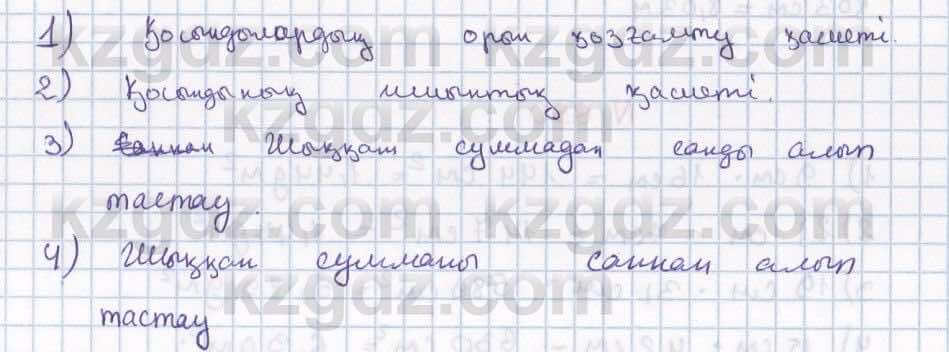 1) Қосындылардың орын қозғалту қасиеті.
2) Қосындының ишынтық қасиеті.
3) Шыққан суммадан санды алып
тастау.
4) Шыққан сумманы саннан алып
тастау
kzgdz.com kzgdz.com